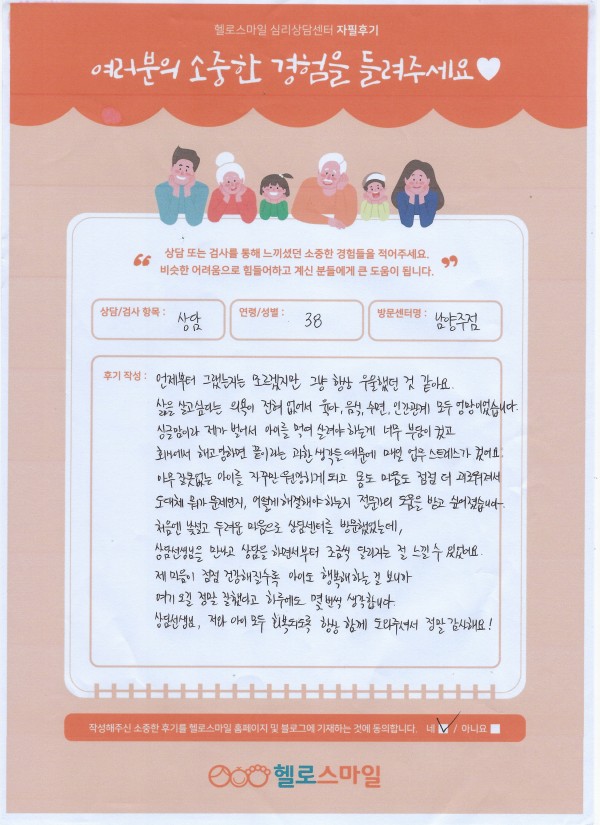 헬로스마일 심리상담센터 자필후기
여러분의 소중한 경험을 들려주세요♥
“ 상담 또는 검사를 통해 느끼셨던 소중한 경험들을 적어주세요.
비슷한 어려움으로 힘들어하고 계신 분들에게 큰 도움이 됩니다. ”
상담/검사 항목 : 상담 연령/성별 : 38 방문센터명 : 남양주점
후기 작성 : 언제부터 그랬는지는 모르겠지만 그냥 항상 우울했던 것 같아요.
삶을 살고싶다는 의욕이 전혀 없어서 육아, 음식, 수면, 인간관계 모두 엉망이었습니다.
싱글맘이라 제가 벌어서 아이를 먹여 살려야 하는게 너무 부담이 컸고
회사에서 해고당하면 끝이라는 과한 생각들 때문에 매일 업무 스트레스가 컸어요.
아무 잘못없는 아이를 자꾸만 원망하게 되고 몸도 마음도 점점 더 괴로워져서
도대체 뭐가 문제인지, 어떻게 해결해야 하는지 전문가의 도움을 받고 싶어졌습니다.
처음엔 낯설고 두려운 마음으로 상담센터를 방문했었는데,
상담선생님을 만나고 상담을 하면서부터 조금씩 달라지는 걸 느낄 수 있었어요.
제 마음이 점점 건강해질수록 아이도 행복해하는 걸 보니까
여기 오길 정말 잘했다고 하루에도 몇 번씩 생각합니다.
상담선생님, 저와 아이 모두 회복되도록 항상 함께 도와주셔서 정말 감사해요!
작성해주신 소중한 후기를 헬로스마일 홈페이지 및 블로그에 기재하는 것에 동의합니다. 네 ✓ / 아니요
헬로스마일